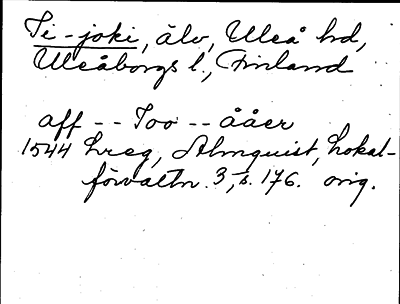 Ii-joki, älv, Uleå hd,
Uleåborgs l., Finland
aff -- Ioo -- ååer
1544 hreg, Almquist, Lokal-
förvaltn. 3, s. 176. orig.